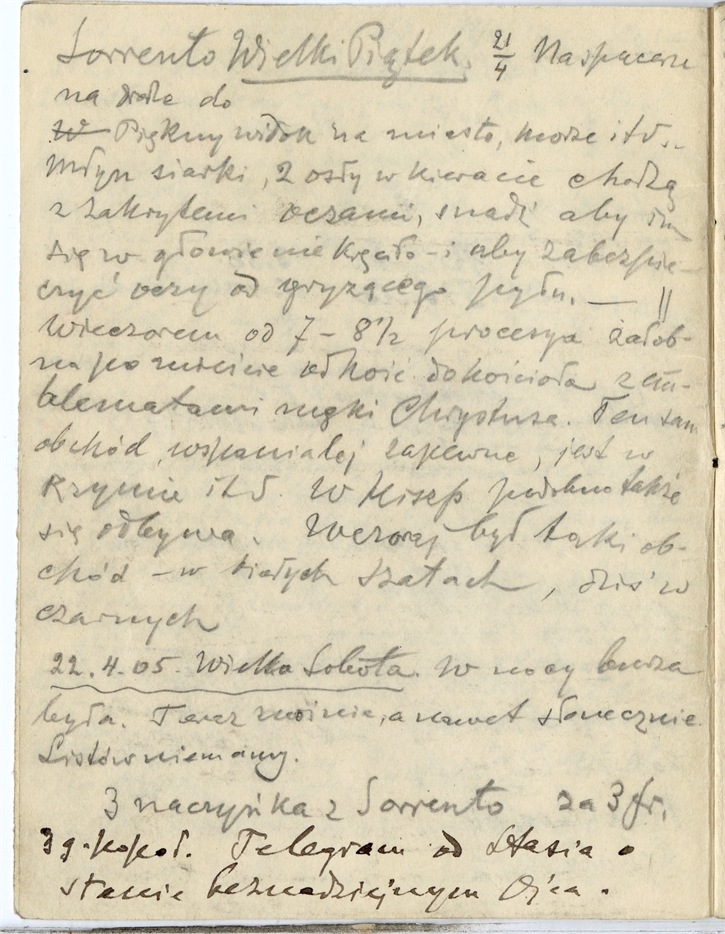 Sorrento Wielki Piątek. 21/4 Na spacerze
na drodze do
W Piękny widok na miasto, morze itd..
Młyn siarki, 2 osły w kieracie chodzą
z zakrytemi oczami, snadź aby im
się w głowie nie kręciło - i aby zabezpie-
czyć oczy od gryzącego pyłu. — ||
Wieczorem od 7 - 8½ procesya żałob-
na po mieście od kośc. do kościoła z em-
blematami męki Chrystusa. Ten sam
obchód, wspanialej zapewne, jest w
Rzymie itd. W Hiszp podobno także
się odbywa. Wczoraj był taki ob-
chód - w białych szatach, dziś w
czarnych
22.4.05. Wielka Sobota. W nocy burza
była. Teraz , a nawet słonecznie.
Listów niemamy.
3 naczyńka z Sorrento za 3 fr.
3 g. popoł. Telegram od Stasia o
stanie beznadziejnym Ojca.